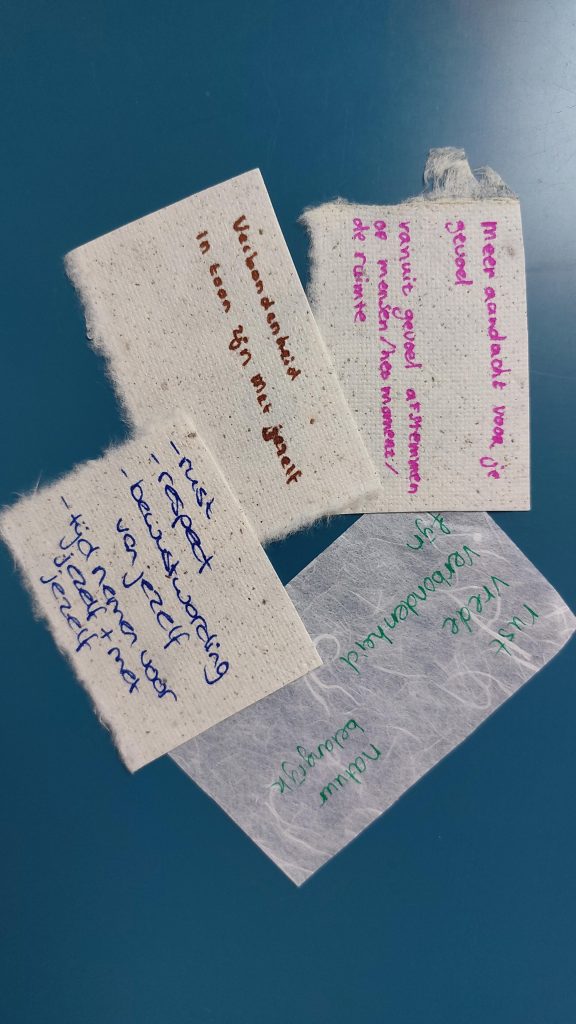 meer aandacht voor je
gevoel
vanuit gevoel afstemmen
op mensen/het moment/
de ruimte
Verbondenheid
in toon zijn met jezelf
- rust
- respect
- bewustwording
van jezelf
- tijd nemen voor
jezelf + met
jezelf
rust
vrede
verbondenheid
fijn
natuur
belangrijk